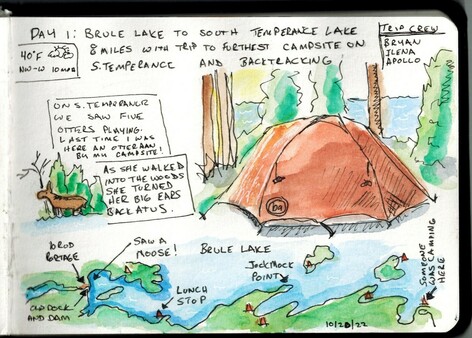 DAY 1: BRULE LAKE TO SOUTH TEMPERANCE LAKE
8 MILES WITH TRIP TO FURTHEST CAMPSITE ON
S. TEMPERANCE AND BACKTRACKING
TRIP CREW
BRYAN
ILENA
APOLLO
40°F
NW-W 10 MPH
ON S. TEMPERANCE
WE SAW FIVE
OTTERS PLAYING.
LAST TIME I WAS
HERE AN OTTER RAN
BY MY CAMPSITE!
AS SHE WALKED
INTO THE WOODS
SHE TURNED
HER BIG EARS
BACK AT US.
10 ROD
PORTAGE
SAW A
MOOSE!
BRULE LAKE
JOCK MOCK
POINT
LUNCH
STOP
OLD DOCK
AND DAM
SOMEONE
WAS CAMPING
HERE
10/28/22